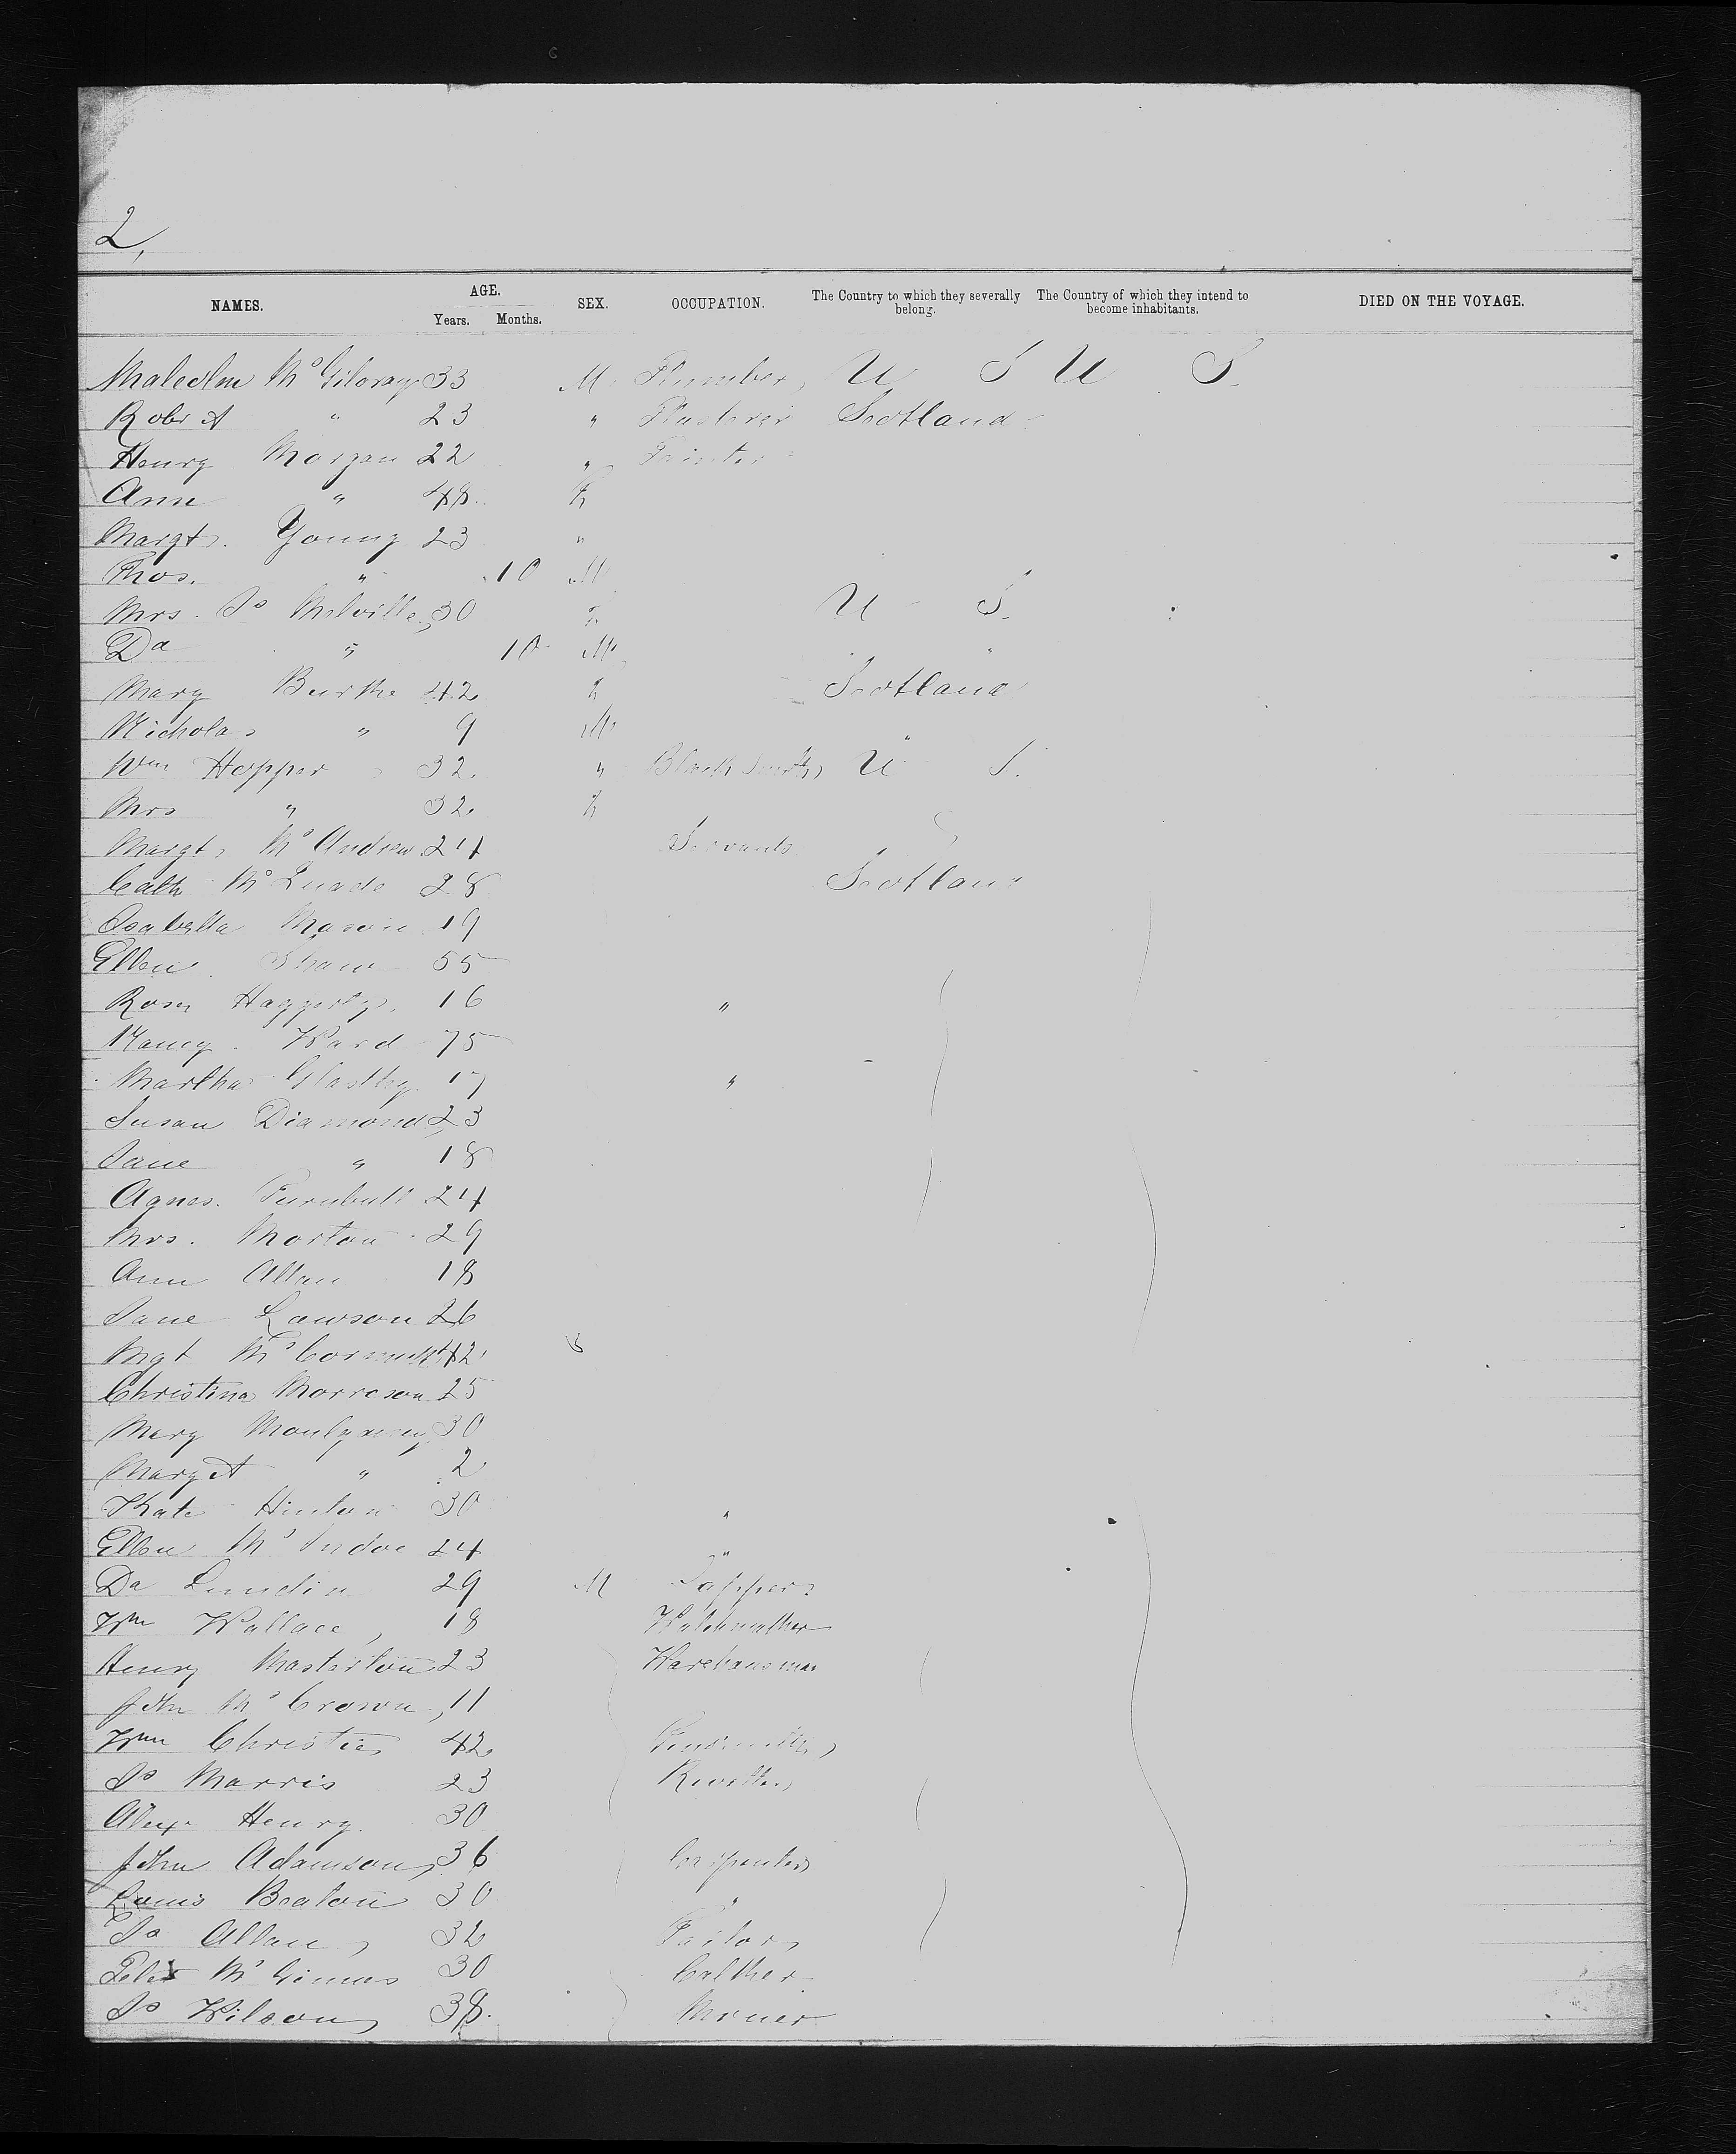 2,
NAMES. AGE. Years. Months. SEX. OCCUPATION. The Country to which they severally belong. The Country of which they intend to become inhabitants. DIED ON THE VOYAGE.
Malcolm McGilvray 33 M Plumber, U S U S.
Robert " 23 " Plasterer Scotland
Henry Morgan 22 " Painter
Ann " 48 F
Margt. Young 23 "
Thos. " 10 M
Mrs. Js Melville, 30 F U S.
Da " 10 M " "
Mary Burke 42 F Scotland
Nicholas " 9 M
Wm Hopper 32 " Black Smith, U S.
Mrs " 32 F
Margt McAndrew 24 Servants
Cath McQuade 28 Scotland
Isabella Mason 19
Ellen Shaw 55
Rose Haggerty 16 "
Nancy Ward 75
Martha 17 "
Susan Diamond 23
Jane " 18
Agnes Turnbull 24
Mrs. Morton 29
Ann Allan 18
Jane Lawson 26
Mgt 42
Christina Morrison 25
Mary Montgomery 30
Marget " 2
Kate Hinton 30 "
Ellen McIndoe 24 "
Da Lundin 29 M
Wm Wallace, 18 Watchmaker
Henry Masterton 23 Warehousman
John McCrown, 11
Wm Christie 42
Js Morris 23
Alexr Henry 30
John Adamson, 36 Carpenter
Louis Beaton 30 "
Js Allan, 32 Tailor,
Peter 30
Js Wilson, 38